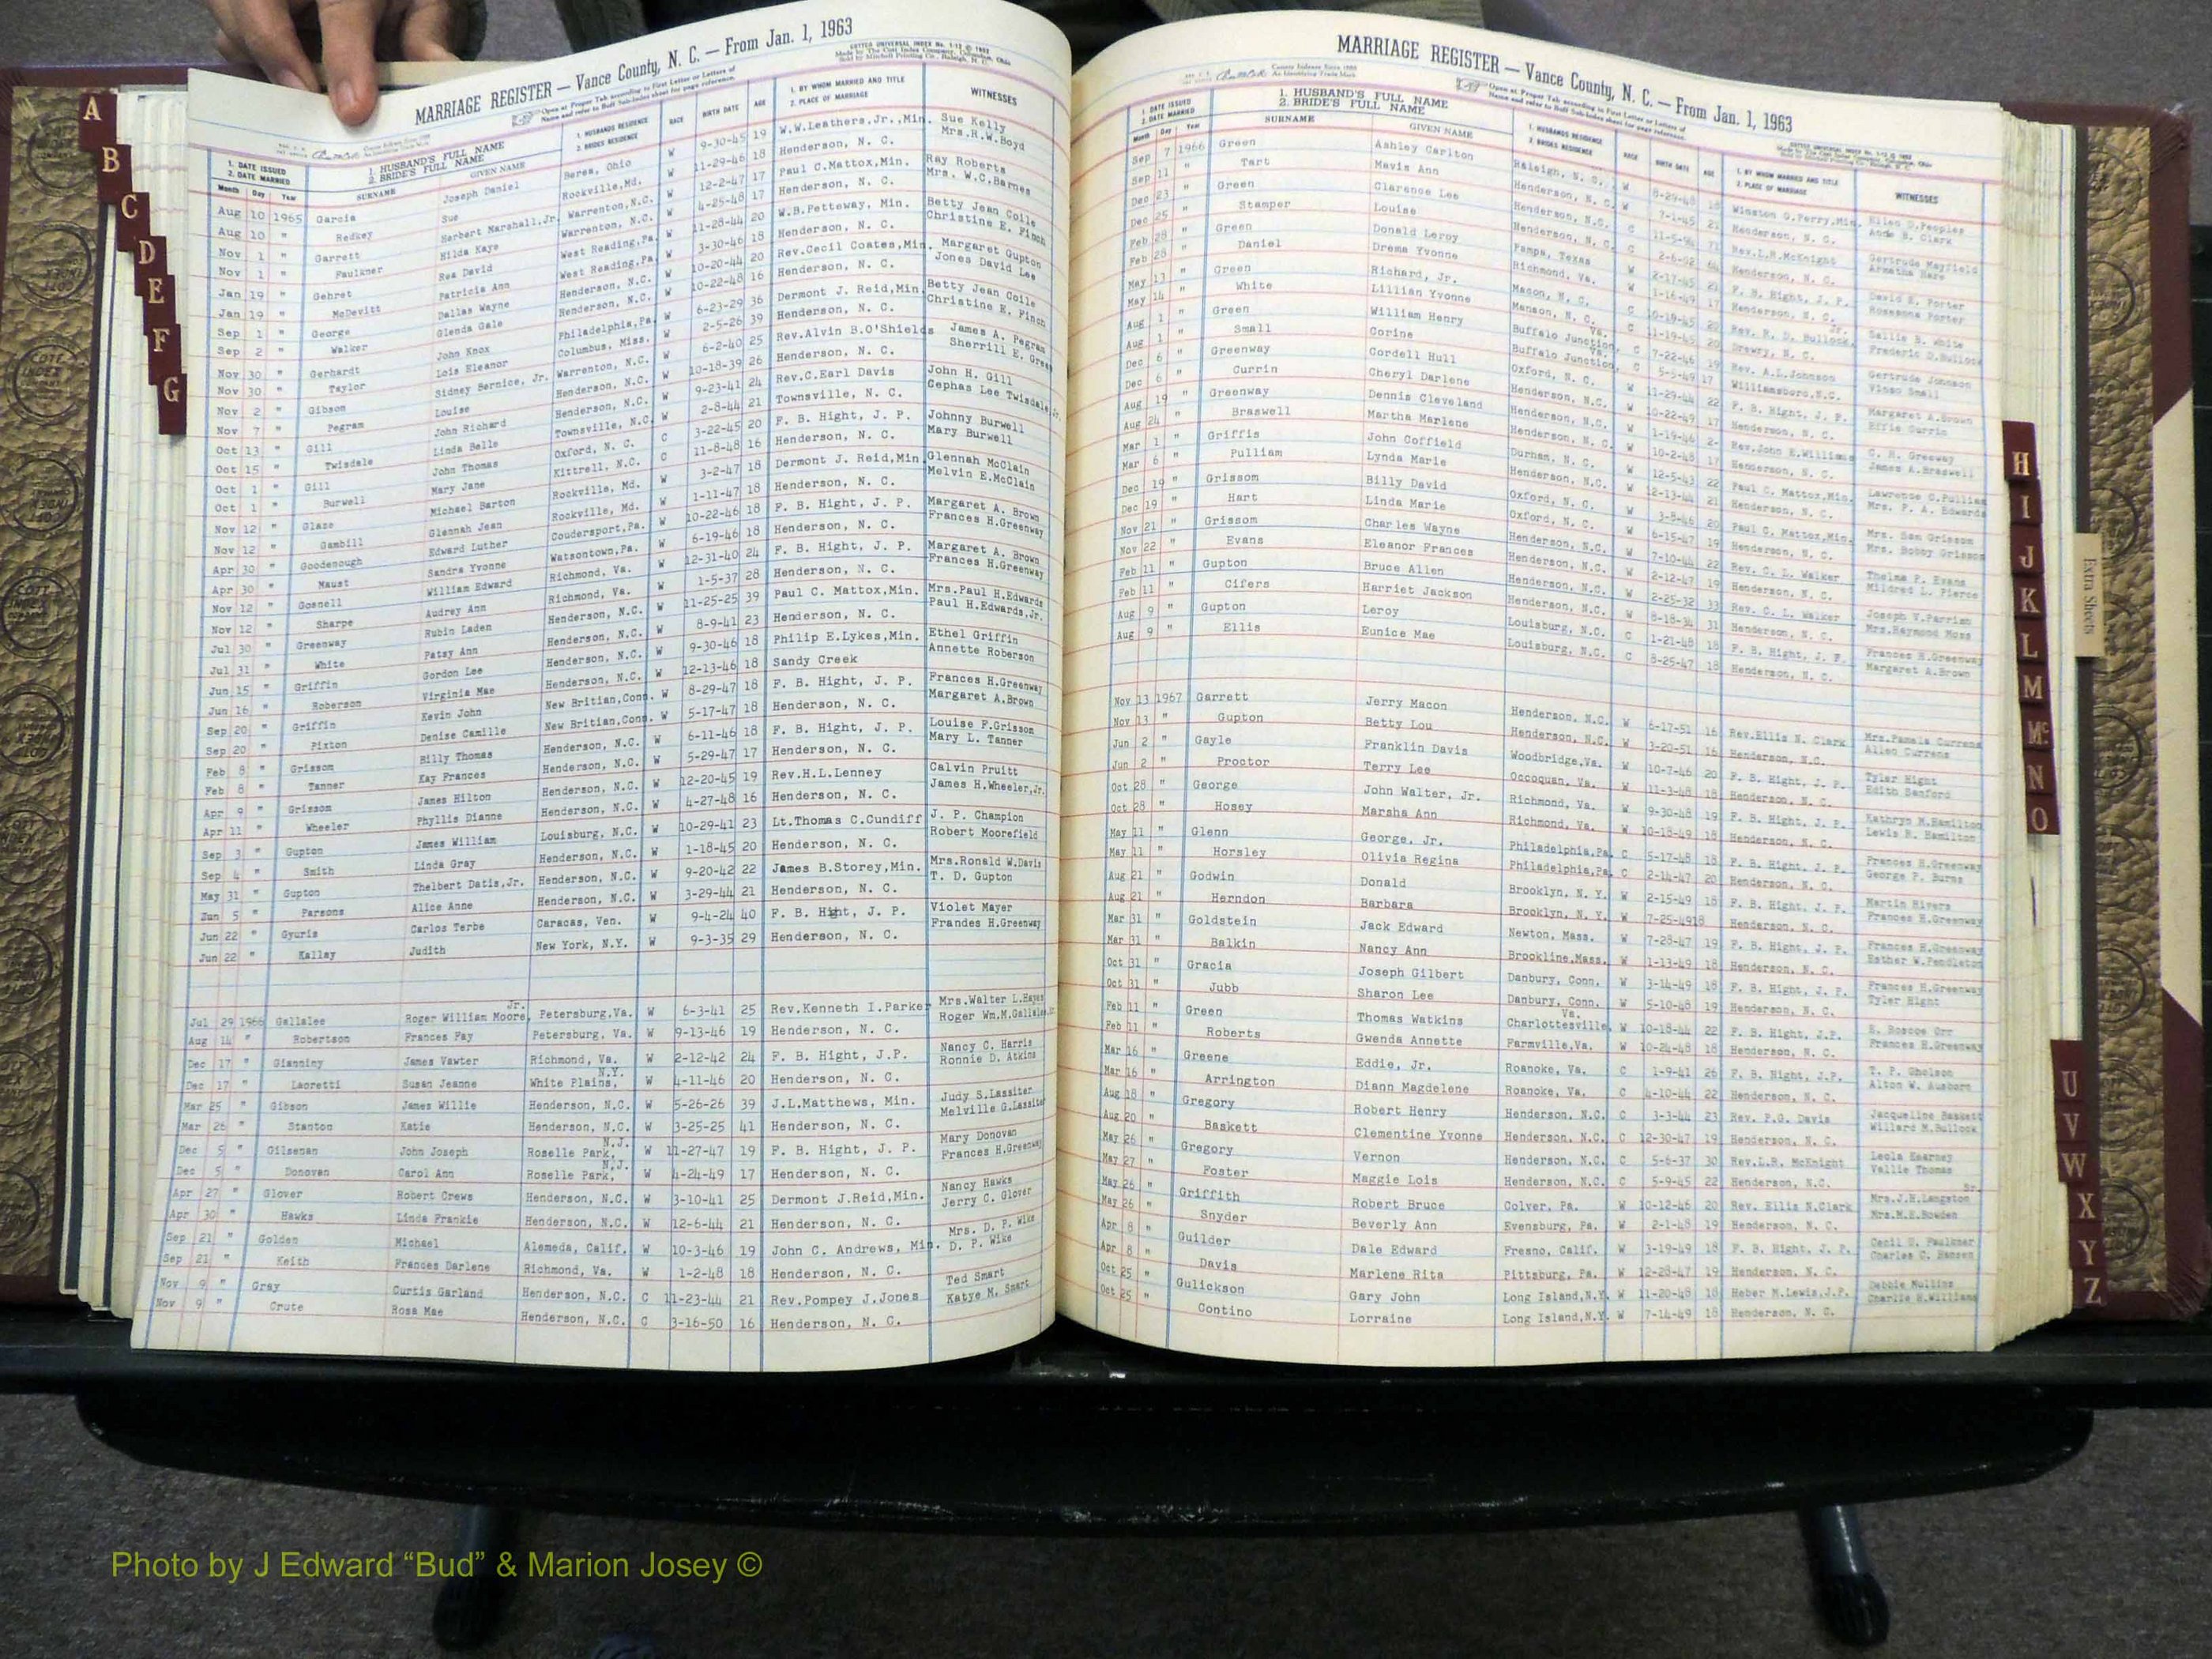 MARRIAGE REGISTER — Vance County, N. C. — From Jan. 1, 1963
1. DATE ISSUED 1. HUSBAND'S FULL NAME 1. HUSBANDS RESIDENCE RACE BIRTH DATE AGE 1. BY WHOM MARRIED AND TITLE WITNESSES
2. DATE MARRIED 2. BRIDE'S FULL NAME 2. BRIDES RESIDENCE 2. PLACE OF MARRIAGE
Month Day Year SURNAME GIVEN NAME
Aug 10 1965 Garcia Joseph Daniel Berea, Ohio W 9-30-45 19 W.W.Leathers,Jr.,Min. Sue Kelly
Aug 10 " Redkey Sue Rockville,Md. W 11-29-46 18 Henderson, N. C. Mrs.R.W.Boyd
Nov 1 " Garrett Herbert Marshall,Jr. Warrenton,N.C. W 12-2-47 17 Paul C.Mattox,Min. Ray Roberts
Nov 1 " Faulkner Hilda Kaye Warrenton, N.C. W 4-25-48 17 Henderson, N. C. Mrs. W.C.Barnes
Jan 19 " Gehret Rea David West Reading,Pa. W 11-28-44 20 W.B.Petteway, Min. Betty Jean Coile
Jan 19 " McDevitt Patricia Ann West Reading,Pa. W 3-30-46 18 Henderson, N. C. Christine E. Finch
Sep 1 " George Dallas Wayne Henderson, N.C. W 10-20-44 20 Rev.Cecil Coates,Min. Margaret Gupton
Sep 2 " Walker Glenda Gale Henderson, N.C. W 10-22-48 16 Henderson, N. C. Jones David Lee
Nov 30 " Gerhardt John Knox Philadelphia,Pa. W 6-23-29 36 Dermont J. Reid,Min. Betty Jean Coile
Nov 30 " Taylor Lois Eleanor Columbus, Miss. W 2-5-26 39 Henderson, N. C. Christine E. Finch
Nov 2 " Gibson Sidney Bernice, Jr. Warrenton, N.C. W 6-2-40 25 Rev.Alvin B.O'Shields James A. Pegram
Nov 7 " Pegram Louise Henderson, N.C. W 10-18-39 26 Henderson, N. C. Sherrill E. Green
Oct 13 " Gill John Richard Henderson, N.C. W 9-23-41 24 Rev.C.Earl Davis John H. Gill
Oct 15 " Twisdale Linda Belle Townsville, N.C. W 2-8-44 21 Townsville, N. C. Cephas Lee Twisdale,Jr.
Oct 1 " Gill John Thomas Oxford, N. C. C 3-22-45 20 F. B. Hight, J. P. Johnny Burwell
Oct 1 " Burwell Mary Jane Kittrell, N.C. C 11-8-48 16 Henderson, N. C. Mary Burwell
Nov 12 " Glaze Michael Barton Rockville, Md. W 3-2-47 18 Dermont J. Reid,Min. Glennah McClain
Nov 12 " Gambill Glennah Jean Rockville, Md. W 1-11-47 18 Henderson, N. C. Melvin E.McClain
Apr 30 " Goodenough Edward Luther Coudersport,Pa. W 10-22-46 18 F. B. Hight, J. P. Margaret A. Brown
Apr 30 " Maust Sandra Yvonne Watsontown,Pa. W 6-19-46 18 Henderson, N. C. Frances H.Greenway
Nov 12 " Gosnell William Edward Richmond, Va. W 12-31-40 24 F. B. Hight, J. P. Margaret A. Brown
Nov 12 " Sharpe Audrey Ann Richmond, Va. W 1-5-37 28 Henderson, N. C. Frances H.Greenway
Jul 30 " Greenway Rubin Laden Henderson, N.C. W 11-25-25 39 Paul C. Mattox,Min. Mrs.Paul H.Edwards
Jul 31 " White Patsy Ann Henderson, N.C. W 8-9-41 23 Henderson, N. C. Paul H.Edwards,Jr.
Jun 15 " Griffin Gordon Lee Henderson, N.C. W 9-30-46 18 Philip E.Lykes,Min. Ethel Griffin
Jun 16 " Roberson Virginia Mae Henderson, N.C. W 12-13-46 18 Sandy Creek Annette Roberson
Sep 20 " Griffin Kevin John New Britian,Conn. W 8-29-47 18 F. B. Hight, J. P. Frances H.Greenway
Sep 20 " Pixton Denise Camille New Britian,Conn. W 5-17-47 18 Henderson, N. C. Margaret A.Brown
Feb 8 " Grissom Billy Thomas Henderson, N.C. W 6-11-46 18 F. B. Hight, J. P. Louise P.Grissom
Feb 8 " Tanner Kay Frances Henderson, N.C. W 5-29-47 17 Henderson, N. C. Mary L. Tanner
Apr 9 " Grissom James Hilton Henderson, N.C. W 12-20-45 19 Rev.H.L.Lenney Calvin Pruitt
Apr 11 " Wheeler Phyllis Dianne Henderson, N.C. W 4-27-48 16 Henderson, N. C. James H.Wheeler,Jr.
Sep 3 " Gupton James William Louisburg, N.C. W 10-29-41 23 Lt.Thomas C.Cundiff J. P. Champion
Sep 4 " Smith Linda Gray Henderson, N.C. W 1-18-45 20 Henderson, N. C. Robert Moorefield
May 31 " Gupton Thelbert Datis,Jr. Henderson, N.C. W 9-20-42 22 James B.Storey,Min. Mrs.Ronald W.Davis
Jun 5 " Parsons Alice Anne Henderson, N.C. W 3-29-44 21 Henderson, N. C. T. D. Gupton
Jun 22 " Gyuris Carlos Terbe Caracas, Ven. W 9-4-24 40 F. B. Hight, J. P. Violet Mayer
Jun 22 " Kallay Judith New York, N.Y. W 9-3-35 29 Henderson, N. C. Frandes H.Greenway
Jul 29 1966 Gallalee Roger William Moore, Jr. Petersburg,Va. W 6-3-41 25 Rev.Kenneth I.Parker Mrs.Walter L.Hayes
Aug 14 " Robertson Frances Fay Petersburg, Va. W 9-13-46 19 Henderson, N. C. Roger Wm.M.Gallalee,
Dec 17 " Gianniny James Vawter Richmond, Va. W 2-12-42 24 F. B. Hight, J.P. Nancy C. Harris
Dec 17 " Laoretti Susan Jeanne White Plains, N.Y. W 4-11-46 20 Henderson, N. C. Ronnie D. Atkins
Mar 25 " Gibson James Willie Henderson, N.C. W 5-26-26 39 J.L.Matthews, Min. Judy S.Lassiter
Mar 26 " Stanton Katie Henderson, N.C. W 3-25-25 41 Henderson, N. C. Melville G.Lassiter
Dec 5 " Gilsenan John Joseph Roselle Park, N.J. W 11-27-47 19 F. B. Hight, J. P. Mary Donovan
Dec 5 " Donovan Carol Ann Roselle Park, N.J. W 4-24-49 17 Henderson, N. C. Frances H.Greenway
Apr 27 " Glover Robert Crews Henderson, N.C. W 3-10-41 25 Dermont J.Reid,Min. Nancy Hawks
Apr 30 " Hawks Linda Frankie Henderson, N.C. W 12-6-44 21 Henderson, N. C. Jerry C. Glover
Sep 21 " Golden Michael Alemeda, Calif. W 10-3-46 19 John C. Andrews, Min. Mrs. D. P. Wike
Sep 21 " Keith Frances Darlene Richmond, Va. W 1-2-48 18 Henderson, N. C. D. P. Wike
Nov 9 " Gray Curtis Garland Henderson, N.C. C 11-23-44 21 Rev.Pompey J.Jones Ted Smart
Nov 9 " Crute Rosa Mae Henderson, N.C. C 3-16-50 16 Henderson, N. C. Katye M. Smart
MARRIAGE REGISTER — Vance County, N. C. — From Jan. 1, 1963
1. DATE ISSUED 1. HUSBAND'S FULL NAME 1. HUSBANDS RESIDENCE RACE BIRTH DATE AGE 1. BY WHOM MARRIED AND TITLE WITNESSES
2. DATE MARRIED 2. BRIDE'S FULL NAME 2. BRIDES RESIDENCE 2. PLACE OF MARRIAGE
Month Day Year SURNAME GIVEN NAME
Sep 7 1966 Green Ashley Carlton Raleigh, N. C. W 8-29-48 18 Winston G.Perry,Min. Ellen D.Peoples
Sep 11 " Tart Mavis Ann Henderson, N. C. W 7-1-45 21 Henderson, N. C. B. Clark
Dec 23 " Green Clarence Lee Henderson, N.C. C 11-5-94 Rev.L.R.McKnight Gertrude Mayfield
Dec 25 " Stamper Louise Henderson, N. C. C 2-6-02 64 Henderson, N. C. Armatha Hare
Feb 28 " Green Donald Leroy Pampa, Texas W 2-17-45 21 F. B. Hight, J. P. David E. Porter
Feb 28 " Daniel Drema Yvonne Richmond, Va. W 1-16-49 17 Henderson, N. C. Roseanna Porter
May 13 " Green Richard, Jr. Macon, N. C. C 10-19-45 20 Rev. R. D. Bullock, Jr. Sallie B. White
May 14 " White Lillian Yvonne Manson, N. C. C 11-19-45 20 Drewry, N. C. Frederic D.Bullock
Aug 1 " Green William Henry Buffalo Junction, Va. C 7-22-46 19 Rev. A.L.Johnson Gertrude Johnson
Aug 1 " Small Corine Buffalo Junction, Va. C 5-5-49 17 Williamsboro,N.C. Vinso Small
Dec 6 " Greenway Cordell Hull Oxford, N. C. W 11-29-44 22 F. B. Hight, J. P. Margaret A.Brown
Dec 6 " Currin Cheryl Darlene Henderson, N.C. W 10-22-49 17 Henderson, N. C. Effie Currin
Aug 19 " Greenway Dennis Cleveland Henderson, N.C. W 1-19-46 Rev.John E.Williams C. H. Greeway
Aug 24 " Braswell Martha Marlene Henderson, N. C. W 10-2-48 17 Henderson, N. C. James A.Braswell
Mar 1 " Griffis John Coffield Durham, N. C. W 12-5-43 22 Paul C. Mattox,Min. Lawrence C.Pulliam
Mar 6 " Pulliam Lynda Marie Henderson, N.C. W 12-13-44 21 Henderson, N. C. Mrs. P. A. Edwards
Dec 19 " Grissom Billy David Oxford, N. C. W 3-8-46 20 Paul C. Mattox,Min. Mrs. Sam Grissom
Dec 19 " Hart Linda Marie Oxford, N. C. W 6-15-47 19 Henderson, N. C. Mrs. Bobby Grissom
Nov 21 " Grissom Charles Wayne Henderson, N.C. W 7-10-44 22 Rev. C. L. Walker Thelma P. Evans
Nov 22 " Evans Eleanor Frances Henderson, N.C. W 2-12-47 19 Henderson, N. C. Mildred L. Pierce
Feb 11 " Gupton Bruce Allen Henderson, N.C. W 2-25-32 33 Rev. C. L. Walker Joseph V.Parrish
Feb 11 " Cifers Harriet Jackson Henderson, N.C. W 8-18-34 31 Henderson, N. C. Mrs.Raymond Moss
Aug 9 " Gupton Leroy Louisburg, N.C. C 1-21-48 18 F. B. Hight, J. P. Frances H.Greenway
Aug 9 " Ellis Eunice Mae Louisburg, N.C. C 8-25-47 18 Henderson, N. C. Margaret A.Brown
Nov 13 1967 Garrett Jerry Macon Henderson, N.C. W 6-17-51 16 Rev.Ellis N. Clark Mrs.Pamela Currens
Nov 13 " Gupton Betty Lou Henderson, N.C. W 3-20-51 16 Henderson, N.C. Allen Currens
Jun 2 " Gayle Franklin Davis Woodbridge,Va. W 10-7-46 20 F. B. Hight, J. P. Tyler Hight
Jun 2 " Proctor Terry Lee Occoquan, Va. W 11-3-48 18 Henderson, N. C. Edith Sanford
Oct 28 " George John Walter, Jr. Richmond, Va. W 9-30-48 19 F. B. Hight, J. P. Kathryn M.Hamilton
Oct 28 " Hosey Marsha Ann Richmond, Va. W 10-18-49 18 Henderson, N. C. Lewis R. Hamilton
May 11 " Glenn George, Jr. Philadelphia,Pa. C 5-17-48 18 F. B. Hight, J. P. Frances H.Greenway
May 11 " Horsley Olivia Regina Philadelphia,Pa. C 2-14-47 20 Henderson, N. C. George P. Burns
Aug 21 " Godwin Donald Brooklyn, N. Y. W 2-15-49 18 F. B. Hight, J. P. Martin Rivers
Aug 21 " Herndon Barbara Brooklyn, N. Y. W 7-25-49 18 Henderson, N. C. Frances H.Greenway
Mar 31 " Goldstein Jack Edward Newton, Mass. W 7-28-47 19 F. B. Hight, J. P. Frances H.Greenway
Mar 31 " Balkin Nancy Ann Brookline,Mass. W 1-13-49 18 Henderson, N. C. Esther W.Pendleton
Oct 31 " Gracia Joseph Gilbert Danbury, Conn. W 3-14-49 18 F. B. Hight, J. P. Frances H.Greenway
Oct 31 " Jubb Sharon Lee Danbury, Conn. W 5-10-48 19 Henderson, N. C. Tyler Hight
Feb 11 " Green Thomas Watkins Charlottesville, Va. W 10-18-44 22 F. B. Hight, J.P. E. Roscoe Orr
Feb 11 " Roberts Gwenda Annette Farmville,Va. W 10-24-48 18 Henderson, N. C. Frances H.Greenway
Mar 16 " Greene Eddie, Jr. Roanoke, Va. C 1-9-41 26 F. B. Hight, J.P. T. P. Gholson
Mar 16 " Arrington Diann Magdelene Roanoke, Va. C 4-10-44 22 Henderson, N. C. Alton W. Ausborn
Aug 18 " Gregory Robert Henry Henderson, N.C. C 3-3-44 23 Rev. P.G. Davis Jacqueline Baskett
Aug 20 " Baskett Clementine Yvonne Henderson, N.C. C 12-30-47 19 Henderson, N. C. Willard M.Bullock
May 26 " Gregory Vernon Henderson, N.C. C 5-6-37 30 Rev.L.R. McKnight Leola Kearney
May 27 " Foster Maggie Lois Henderson, N.C. C 5-9-45 22 Henderson, N.C. Vallie Thomas
May 26 " Griffith Robert Bruce Colver, Pa. W 10-12-46 20 Rev. Ellis N.Clark Mrs.J.H.Langston Sr.
May 26 " Snyder Beverly Ann Evensburg, Pa. W 2-1-48 19 Henderson, N. C. Mrs.M.E.Bowden
Apr 8 " Guilder Dale Edward Fresno, Calif. W 3-19-49 18 F. B. Hight, J. P. Cecil Faulkner
Apr 8 " Davis Marlene Rita Pittsburg, Pa. W 12-28-47 19 Henderson, N. C. Charles C. Hansen
Oct 25 " Gulickson Gary John Long Island,N.Y. W 11-20-48 18 Heber M.Lewis,J.P. Debbie Mullins
Oct 25 " Contino Lorraine Long Island,N.Y. W 7-14-49 18 Henderson, N. C. Charlie H.Williams
A
B
C
D
E
F
G
H
I
J
K
L
M
Mc
N
O
U
V
W
X
Y
Z
Extra Sheets
Photo by J Edward “Bud” & Marion Josey ©